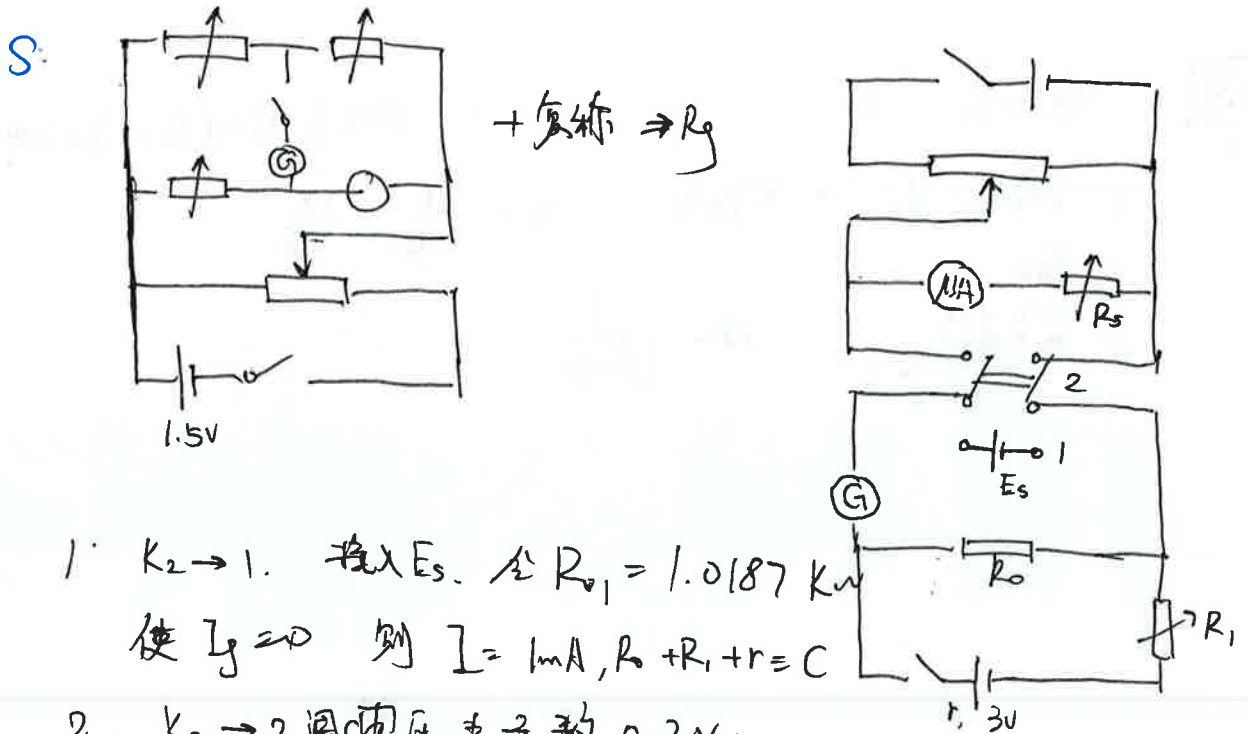 S:
G
1.5V
+ 复称 → Rg
μA
Rs
2
1
Es
G
R₀
R₁
r, 3V
1. K₂ → 1. 接入 Es. 令 R₀₁ = 1.0187 KΩ
使 Ig = 0 则 I = 1mA, R₀ + R₁ + r ≡ C
2. K₂ → 2 调